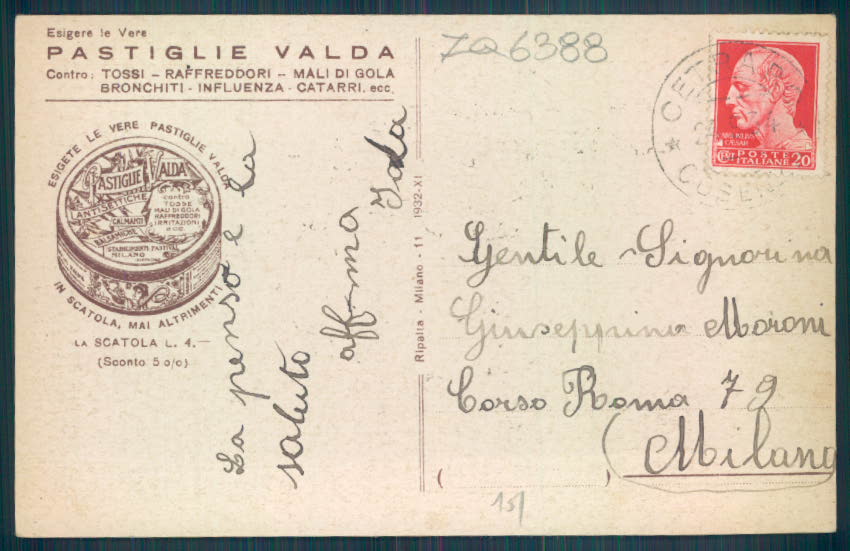 Esigere le Vere
PASTIGLIE VALDA
Contro: TOSSI - RAFFREDDORI - MALI DI GOLA
BRONCHITI - INFLUENZA - CATARRI, ecc.
ESIGETE LE VERE PASTIGLIE VALDA
PASTIGLIE VALDA
ANTISETTICHE
CALMANTI
BALSAMICHE
contro
TOSSE
MALI DI GOLA
RAFFREDDORI
IRRITAZIONI
ecc.
STABILIMENTI
MILANO
IN SCATOLA, MAI ALTRIMENTI
LA SCATOLA L. 4.—
(Sconto 5 o/o)
La penso e la
saluto
aff.ma
Ripalta - Milano - 11 - 1932-XI
ZQ6388
CETRARO
COSENZA
CAESAR
CENT POSTE 20
ITALIANE
Gentile Signorina
Giuseppina Moroni
Corso Roma 79
(Milano
( )
15/